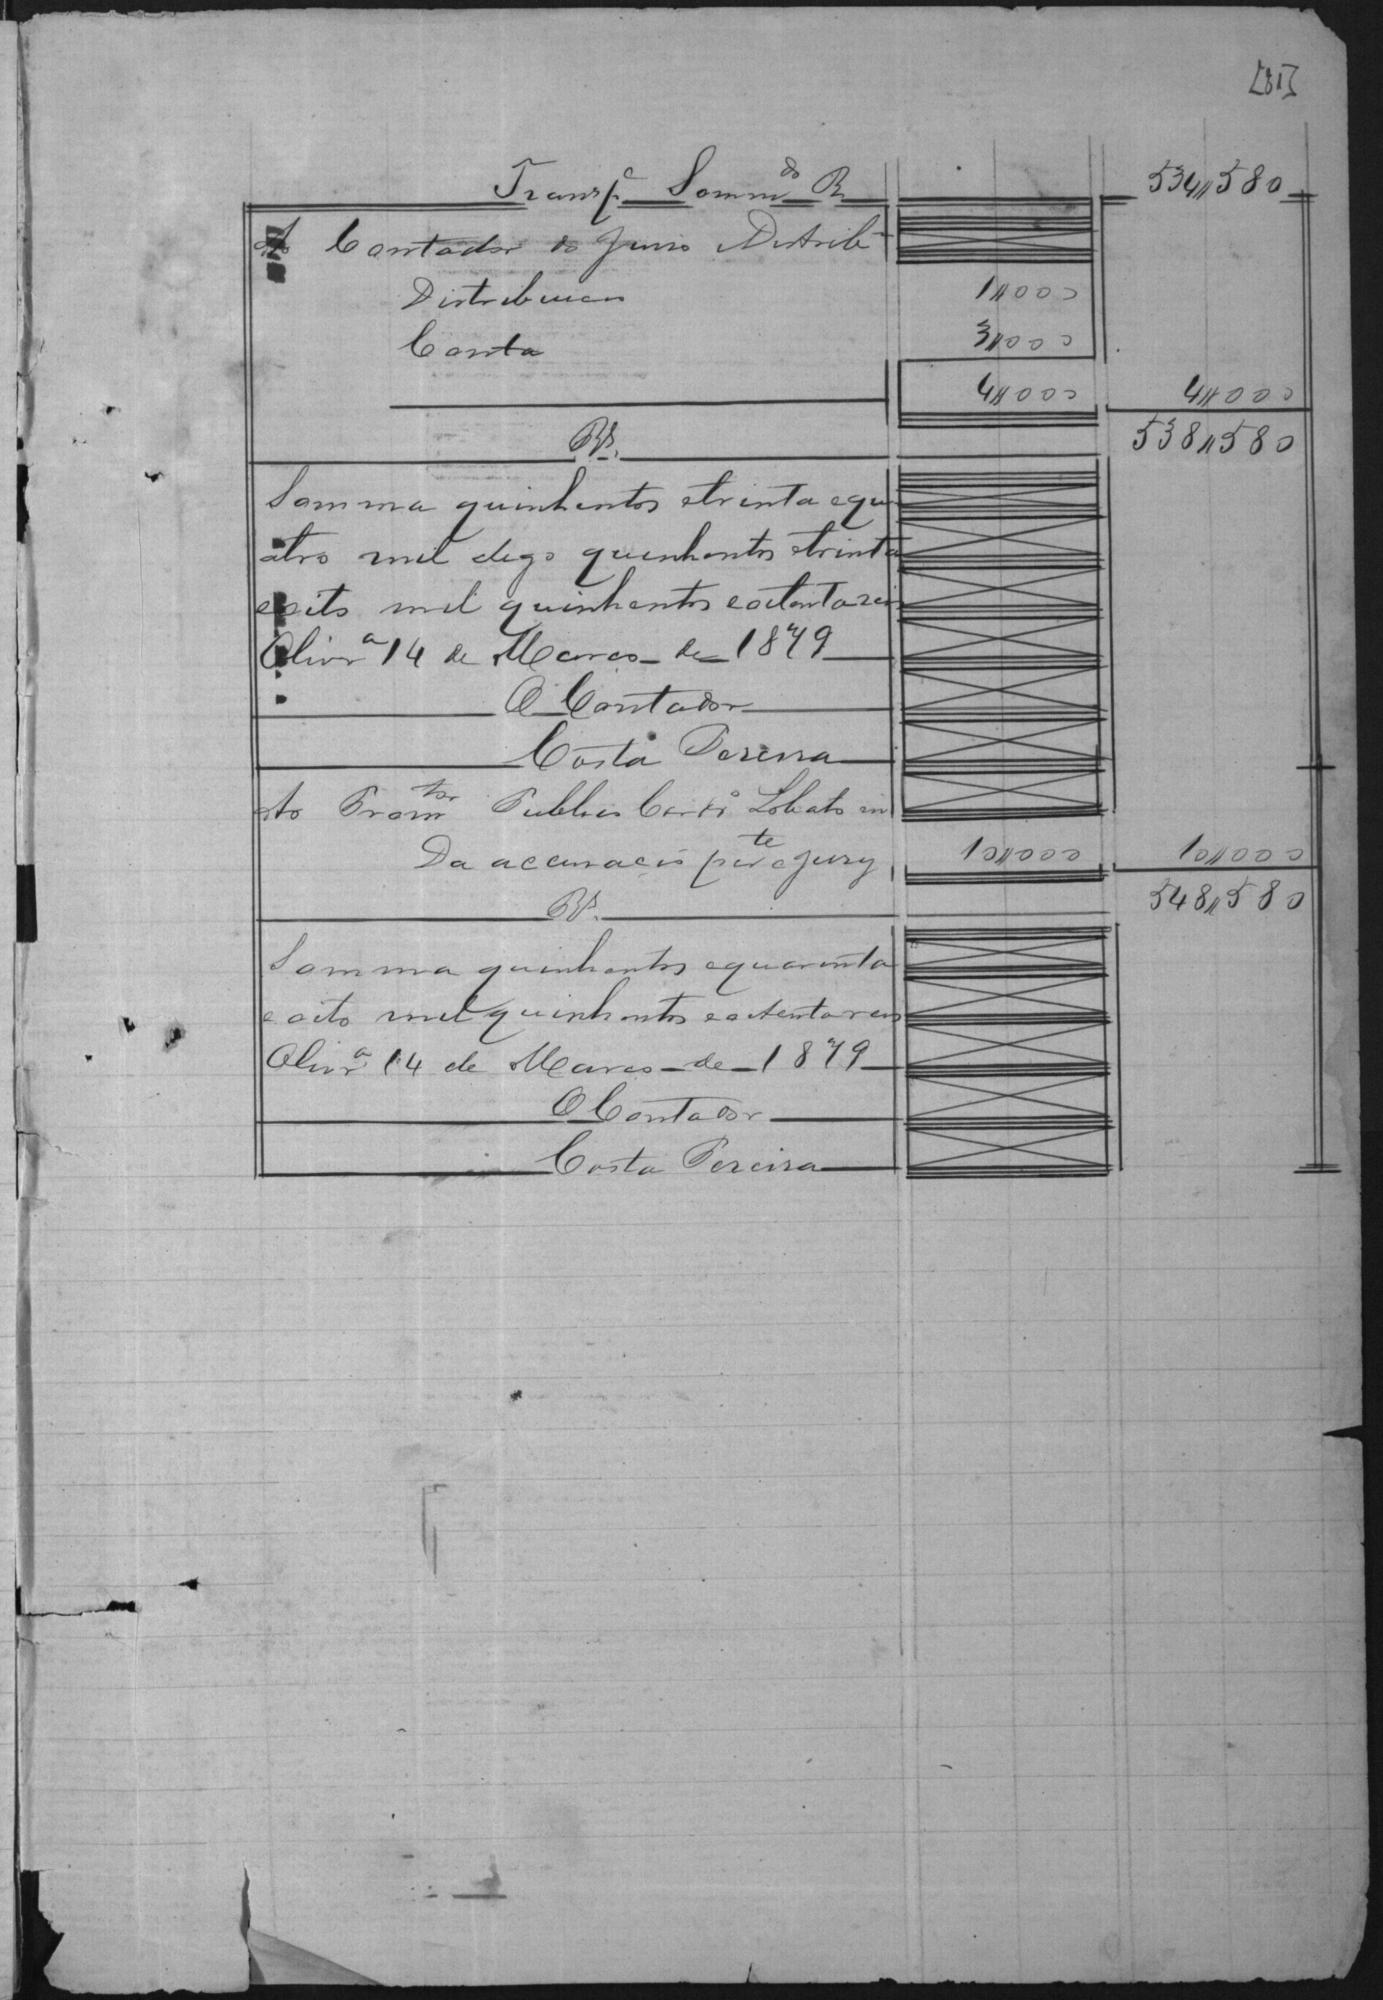 [81]
Transp.e Somm.do R 534,,580
Ao Contador do Juiso Distrib
Distribuicao 1,,000
Conta 3,,000
4,,000 4,,000
Rs. 538,,580
Somma quinhentos etrinta equ
atro mil digo quinhentos etrinta
eoito mil quinhentos eoitenta reis
Olivr.a 14 de Março de 1879
O Contador
Costa Pereira
Ao Prom.tor Publico Lobato
Da accusação per.te o Jury 10,,000 10,,000
Rs. 548,,580
Somma quinhentos equarenta
eoito mil quinhentos eoitenta reis
Olivr.a 14 de Março de 1879
O Contador
Costa Pereira